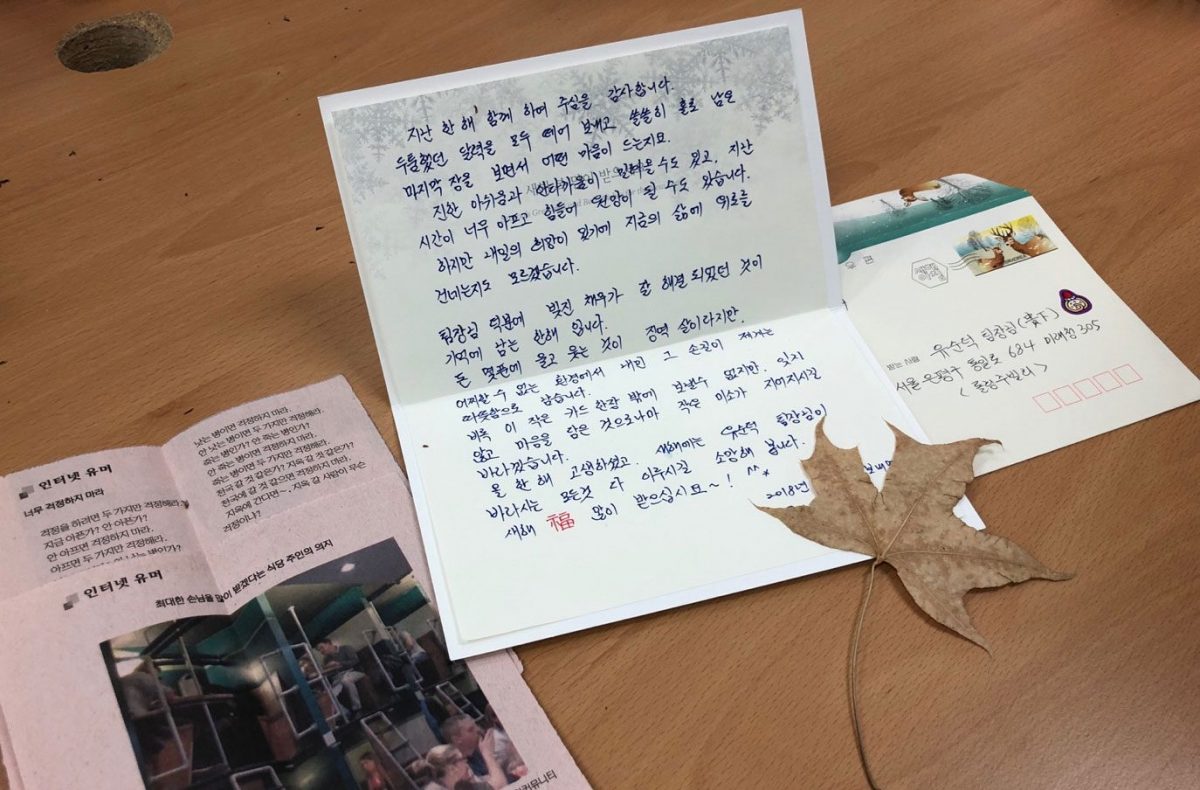 지난 한 해 함께 하여 주심을 감사합니다.
두툼했던 달력을 모두 떼어 보내고 쓸쓸히 홀로 남은
마지막 장을 보면서 어떤 마음이 드는지요.
진한 아쉬움과 안타까움이 밀려올 수도 있고, 지난
시간이 너무 아프고 힘들어 원망이 될 수도 있습니다.
하지만 내일의 희망이 있기에 지금의 삶에 위로를
건네는지도 모르겠습니다.
팀장님 덕분에 빚진 채무가 잘 해결 되었던 것이
기억에 남는 한해 입니다.
돈 몇푼에 울고 웃는 것이 징역 살이라지만,
어찌할 수 없는 환경에서 내민 그 손길이 제게는
따뜻함으로 남습니다.
비록 이 작은 카드 한장 밖에 보낼수 없지만, 잊지
않고 마음을 담은 것으로나마 작은 미소가 지어지시길
바라겠습니다.
올 한 해 고생하셨고, 새해에는 유순덕 팀장님이
바라시는 모든것 다 이루시길 소망해 봅니다.
새해 福 많이 받으십시요~! ^^*
2018년
보내며
받는 사람 유순덕 팀장님(貴下)
서울 은평구 통일로 684 미래청 305
<롤링주빌리>
인터넷 유머
너무 걱정하지 마라
걱정을 하려면 두 가지만 걱정해라.
지금 아픈가? 안 아픈가?
안 아프면 걱정하지 마라.
아프면 두 가지만 걱정해라.
낫는 병이면 걱정하지 마라.
안 낫는 병이면 두 가지만 걱정해라.
죽는 병인가? 안 죽는 병인가?
안 죽는 병이면 걱정하지 마라.
죽는 병이면 두 가지만 걱정해라.
천국 갈 것 같은가? 지옥 갈 것 같은가?
천국에 갈 것 같으면 걱정하지 마라.
지옥에 간다면~, 지옥 갈 사람이 무슨
걱정이냐?
인터넷 유머
최대한 손님을 많이 받겠다는 식당 주인의 의지